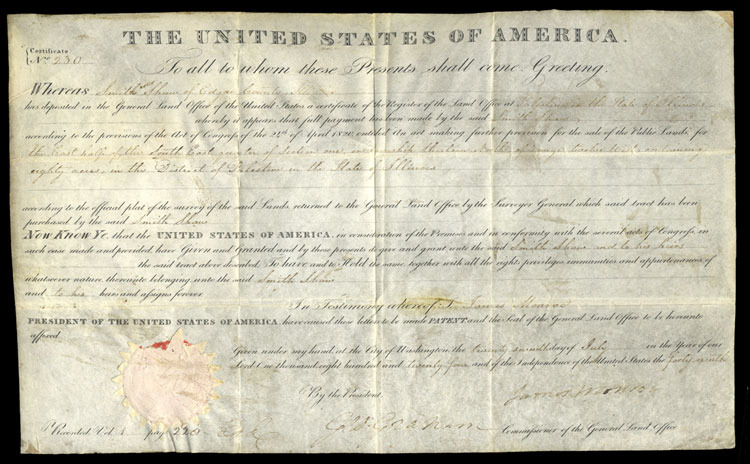 THE UNITED STATES OF AMERICA.
Certificate
No. 230
To all to whom these Presents shall come, Greeting:
Whereas Smith Shaw of Edgar County Illinois
has deposited in the General Land Office of the United States a certificate of the Register of the Land Office at Palestine in the State of Illinois
whereby it appears that full payment has been made by the said Smith Shaw
according to the provisions of the Act of Congress of the 24th of April 1820, entitled An act making further provision for the sale of the Public Lands, for
the East half of the South East quarter of Section one in township North of range twelve West containing
eighty acres, in the District of Palestine in the State of Illinois
according to the official plat of the survey of the said Lands, returned to the General Land Office by the Surveyor General which said tract has been
purchased by the said Smith Shaw
Now Know Ye, that the UNITED STATES OF AMERICA, in consideration of the Premises and in conformity with the several acts of Congress, in
such case made and provided, have Given and Granted and by these presents do give and grant unto the said Smith Shaw and to his heirs
the said tract above described. To have and to Hold the same, together with all the rights, privileges, immunities and appurtenances of
whatsoever nature, thereunto belonging unto the said Smith Shaw
and to his heirs and assigns forever
In Testimony whereof I, James Monroe
PRESIDENT OF THE UNITED STATES OF AMERICA, have caused these letters to be made PATENT, and the Seal of the General Land Office to be hereunto
affixed
Given under my hand, at the City of Washington, the twenty seventh day of July in the Year of our
Lord One thousand eight hundred and twenty four and of the Independence of the United States the forty ninth
By the President James Monroe
Geo. Graham Commissioner of the General Land Office
Recorded Vol. 1 page 220